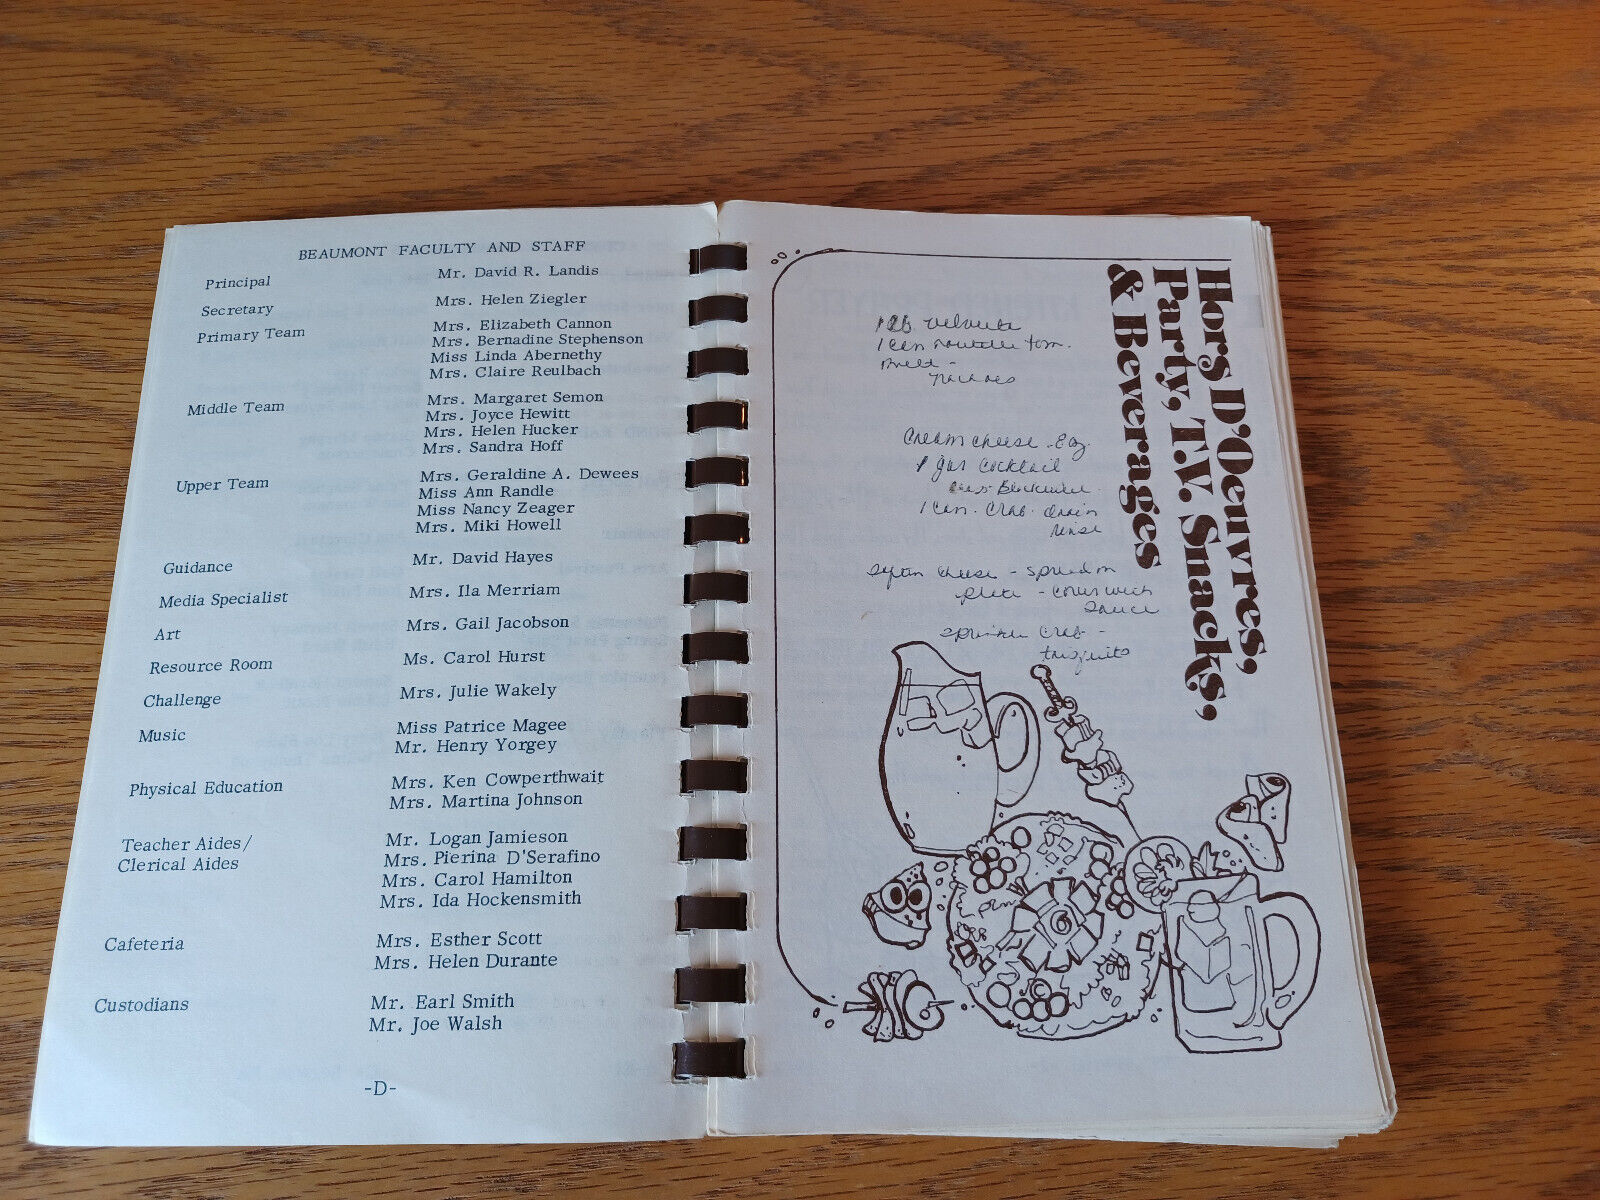 BEAUMONT FACULTY AND STAFF
Principal Mr. David R. Landis
Secretary Mrs. Helen Ziegler
Primary Team Mrs. Elizabeth Cannon
Mrs. Bernadine Stephenson
Miss Linda Abernethy
Mrs. Claire Reulbach
Middle Team Mrs. Margaret Semon
Mrs. Joyce Hewitt
Mrs. Helen Hucker
Mrs. Sandra Hoff
Upper Team Mrs. Geraldine A. Dewees
Miss Ann Randle
Miss Nancy Zeager
Mrs. Miki Howell
Guidance Mr. David Hayes
Media Specialist Mrs. Ila Merriam
Art Mrs. Gail Jacobson
Resource Room Ms. Carol Hurst
Challenge Mrs. Julie Wakely
Music Miss Patrice Magee
Mr. Henry Yorgey
Physical Education Mrs. Ken Cowperthwait
Mrs. Martina Johnson
Teacher Aides/ Mr. Logan Jamieson
Clerical Aides Mrs. Pierina D'Serafino
Mrs. Carol Hamilton
Mrs. Ida Hockensmith
Cafeteria Mrs. Esther Scott
Mrs. Helen Durante
Custodians Mr. Earl Smith
Mr. Joe Walsh
-D-
Hors D'Oeuvres,
Party, T.V. Snacks,
& Beverages
1 lb. velveeta
1 can tom.
melt -
nachoes
Cream cheese. 8 oz.
1 jar Cocktail
1 can. Crab. drain
rinse
Soften cheese - spread on
plate - cover with
sauce
sprinkle Crab -